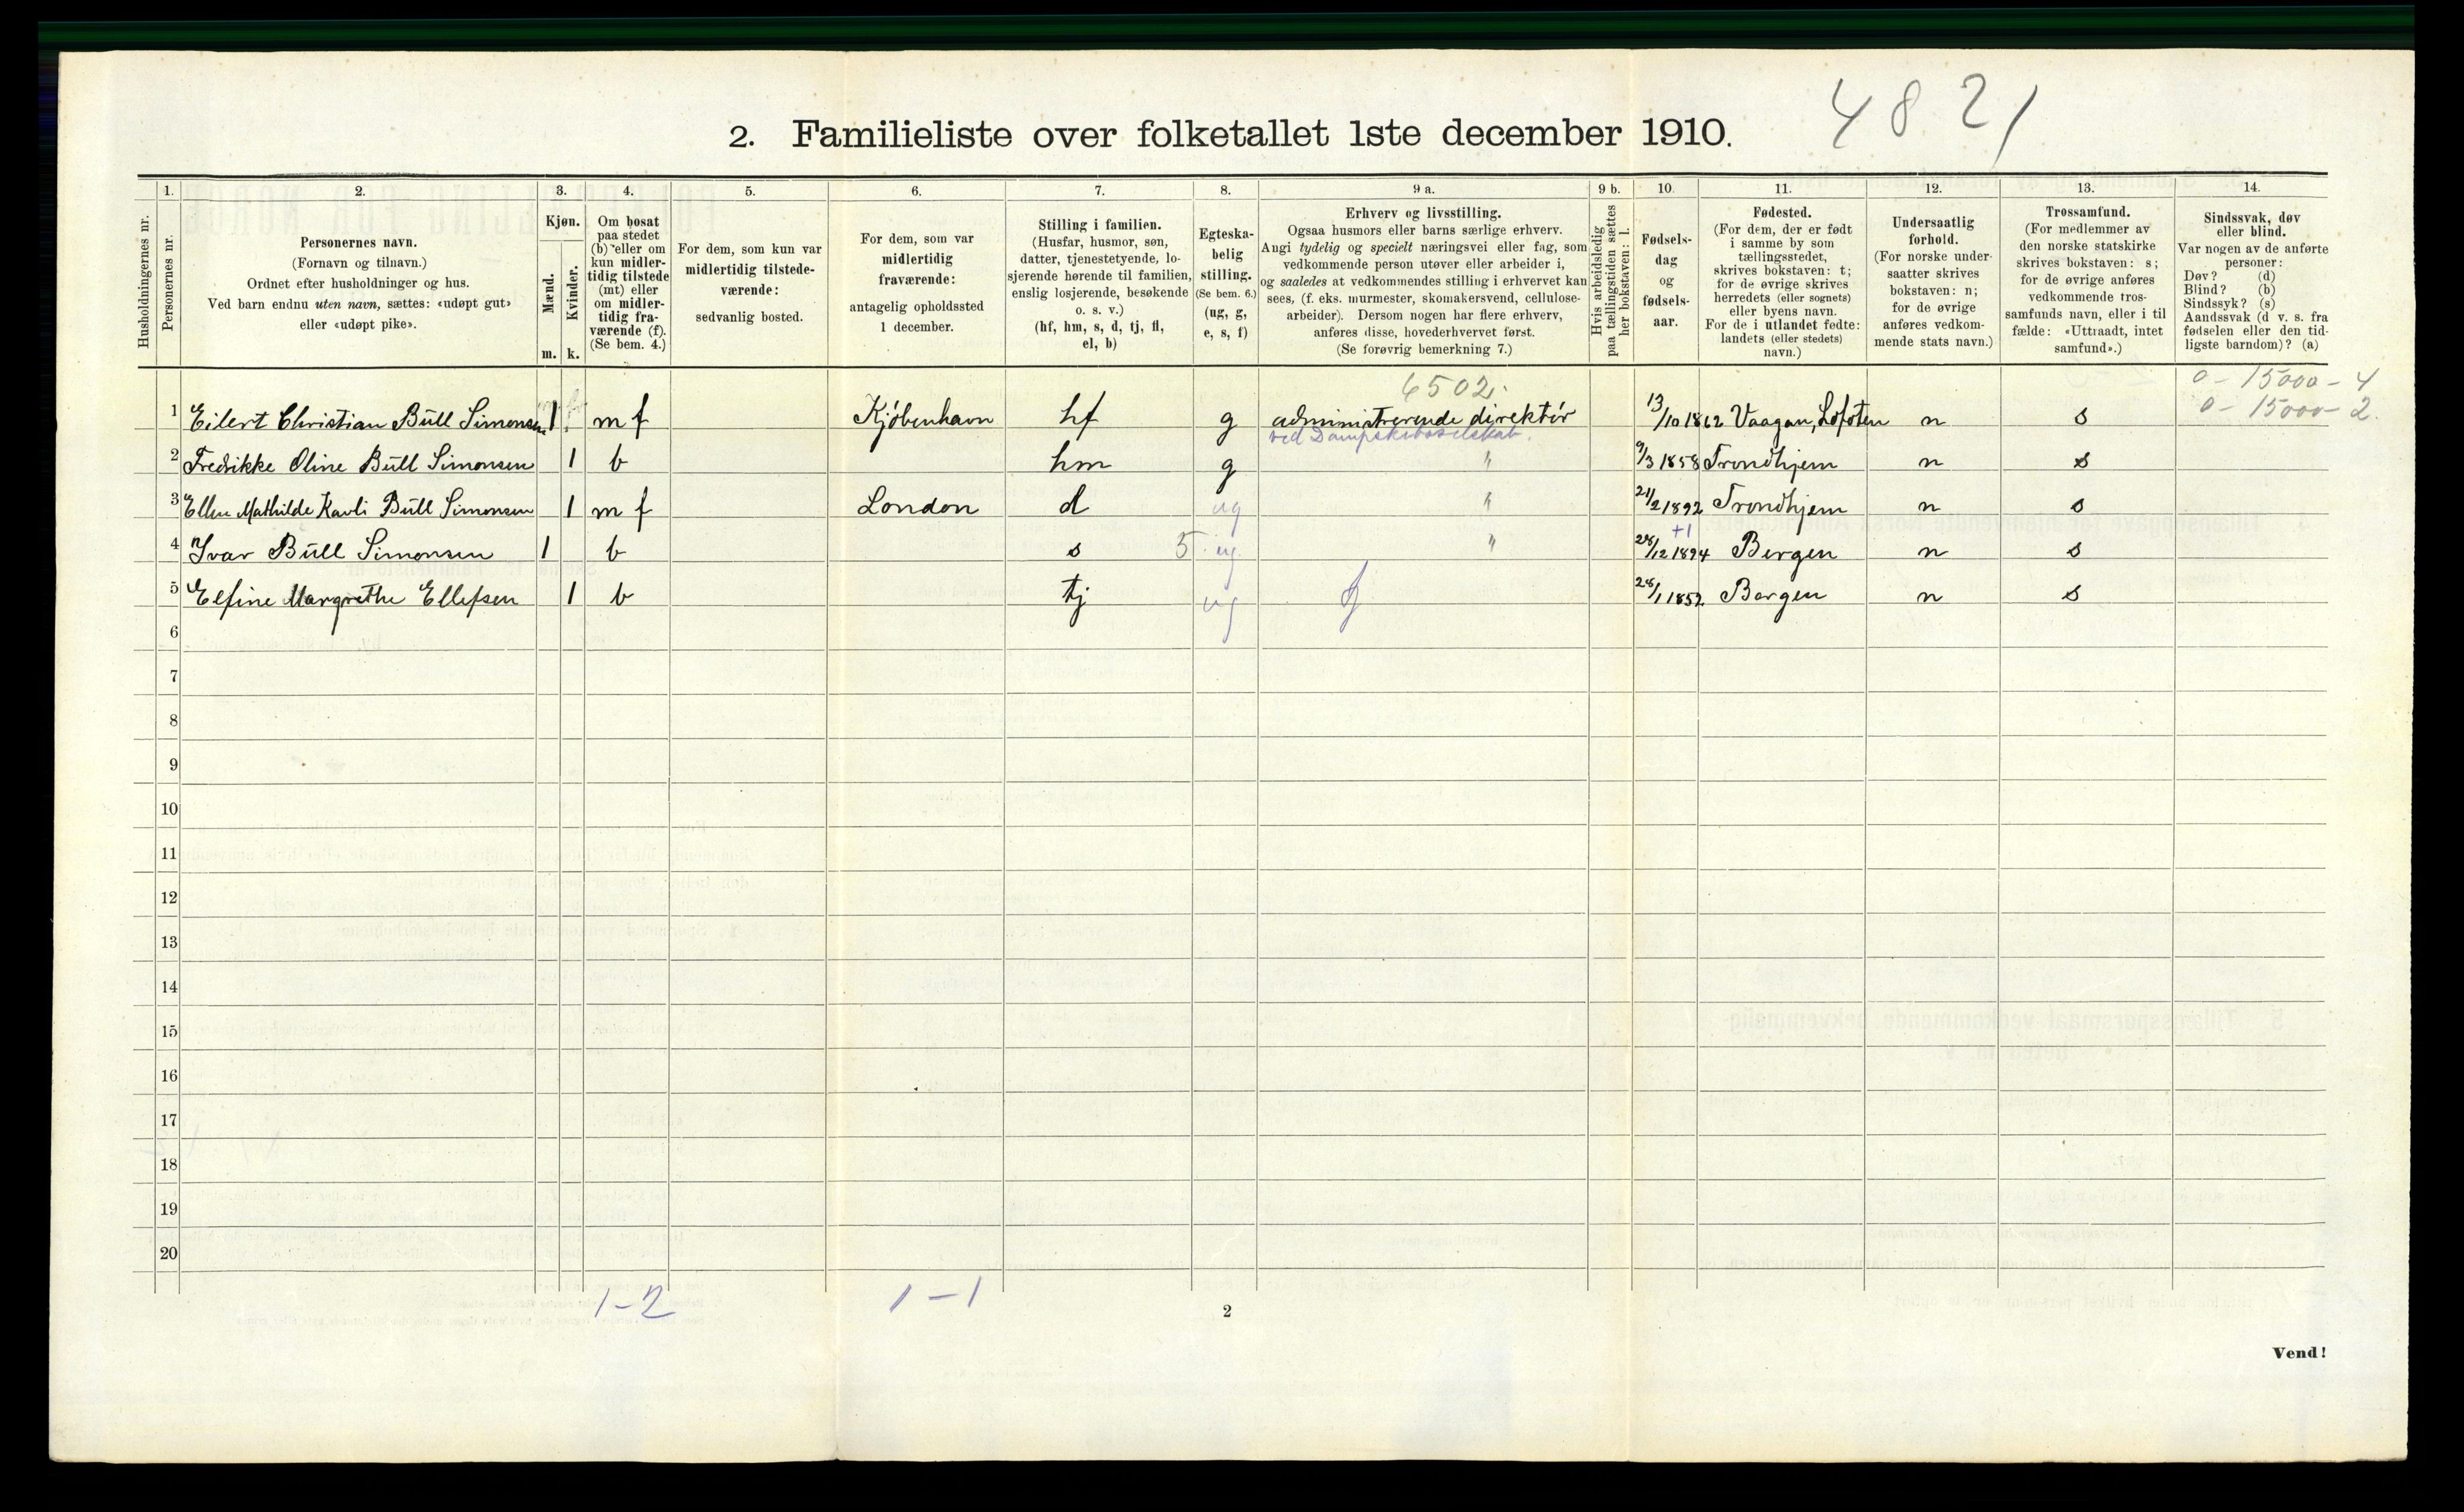 4821
2. Familieliste over folketallet 1ste december 1910.
1. 2. 3. 4. 5. 6. 7. 8. 9 a. 9 b. 10. 11. 12. 13. 14.
Husholdningernes nr.
Personernes nr.
Personernes navn.
(Fornavn og tilnavn.)
Ordnet efter husholdninger og hus.
Ved barn endnu uten navn, sættes: «udøpt gut»
eller «udøpt pike».
Kjøn.
Mænd.
Kvinder.
m. k.
Om bosat
paa stedet
(b) eller om
kun midler-
tidig tilstede
(mt) eller
om midler-
tidig fra-
værende (f).
(Se bem. 4.)
For dem, som kun var
midlertidig tilstede-
værende:
sedvanlig bosted.
For dem, som var
midlertidig
fraværende:
antagelig opholdssted
1 december.
Stilling i familien.
(Husfar, husmor, søn,
datter, tjenestetyende, lo-
sjerende hørende til familien,
enslig losjerende, besøkende
o. s. v.)
(hf, hm, s, d, tj, fl,
el, b)
Egteska-
belig
stilling.
(Se bem. 6.)
(ug, g,
e, s, f)
Erhverv og livsstilling.
Ogsaa husmors eller barns særlige erhverv.
Angi tydelig og specielt næringsvei eller fag, som
vedkommende person utøver eller arbeider i,
og saaledes at vedkommendes stilling i erhvervet kan
sees, (f. eks. murmester, skomakersvend, cellulose-
arbeider). Dersom nogen har flere erhverv,
anføres disse, hovederhvervet først.
(Se forøvrig bemerkning 7.)
Hvis arbeidsledig
paa tællingstiden sættes
her bokstaven: l.
Fødsels-
dag
og
fødsels-
aar.
Fødested.
(For dem, der er født
i samme by som
tællingsstedet,
skrives bokstaven: t;
for de øvrige skrives
herredets (eller sognets)
eller byens navn.
For de i utlandet fødte:
landets (eller stedets)
navn.)
Undersaatlig
forhold.
(For norske under-
saatter skrives
bokstaven: n;
for de øvrige
anføres vedkom-
mende stats navn.)
Trossamfund.
(For medlemmer av
den norske statskirke
skrives bokstaven: s;
for de øvrige anføres
vedkommende tros-
samfunds navn, eller i til
fælde: «Uttraadt, intet
samfund».)
Sindssvak, døv
eller blind.
Var nogen av de anførte
personer:
Døv? (d)
Blind? (b)
Sindssyk? (s)
Aandssvak (d v. s. fra
fødselen eller den tid-
ligste barndom)? (a)
6502.
0 - 15000 - 4
0 - 15000 - 2.
1 Eilert Christian Büll Simonsen 1 m f Kjöbenhavn hf g administrerende direktör 13/10 1862 Vaagan, Lofoten n s
ved Dampskibsselskab.
2 Fredrikke Oline Büll Simonsen 1 b hm g " 9/3 1858 Trondhjem n s
3 Ellen Mathilde Kavli Büll Simonsen 1 m f London d ug " 21/2 1892 Trondhjem n s
+1
4 Ivar Büll Simonsen 1 b s 5 ug " 28/12 1894 Bergen n s
5 Elfine Margrethe Ellefsen 1 b tj ug 28/1 1852 Bergen n s
6
7
8
9
10
11
12
13
14
15
16
17
18
19
20
1 - 2 1 - 1
2
Vend!